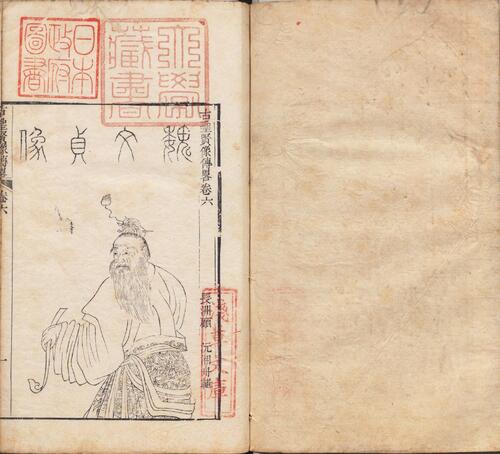 日本
政府
圖書
大學
藏書
淺草文庫
古聖賢像傳畧卷六
長洲顧 沅湘舟輯
魏文貞像
古聖賢像傳畧
卷六
一